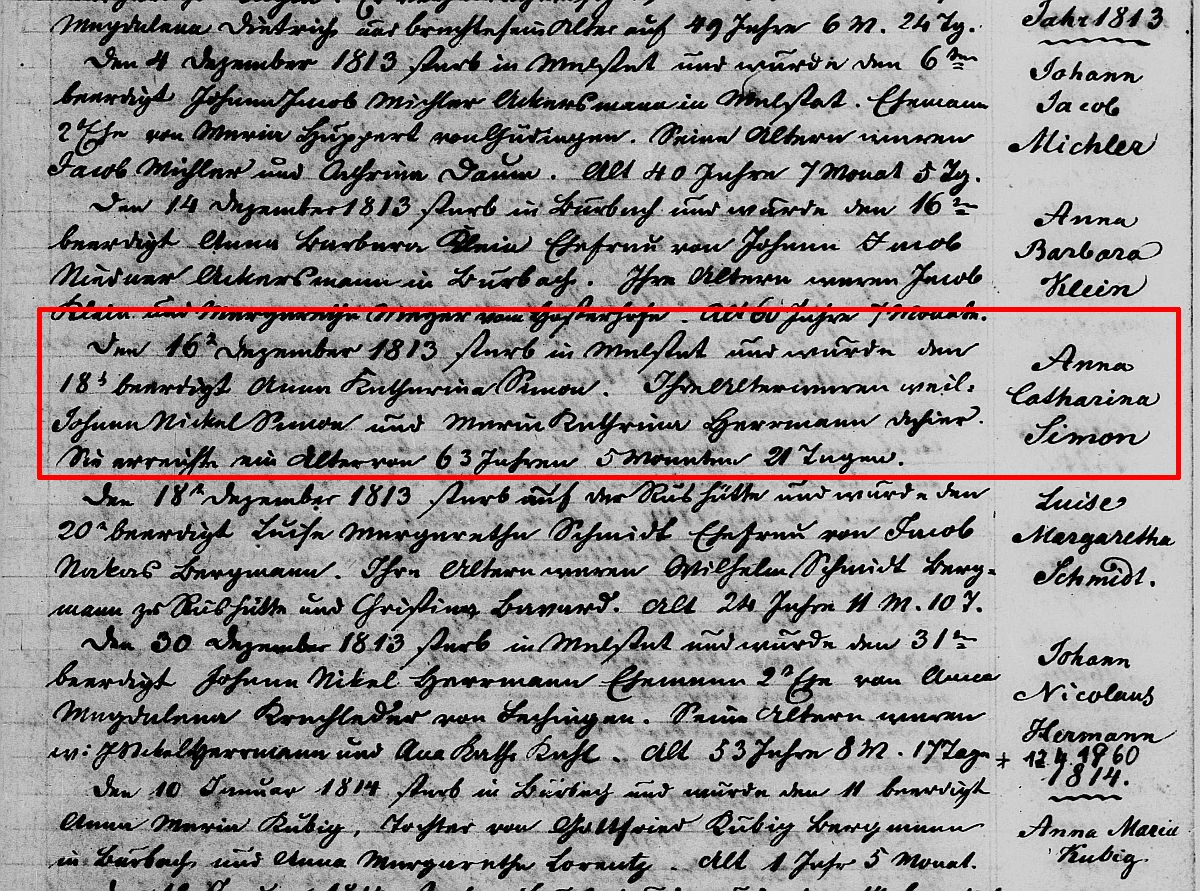 Magdalena Dietrich und brachte sein Alter auf 49 Jahre 6 M. 24 Tg.
Jahr 1813
Den 4 Dezember 1813 starb in Malstat und wurde den 6ten
beerdigt Johann Jacob Michler Ackersmann in Malstat. Ehemann
2r Ehe von Maria Huppert von Güdingen. Seine Altern waren
Jacob Michler und Cathrina Daum. Alt 40 Jahre 7 Monat 5 Tg.
Johann
Jacob
Michler
Den 14 Dezember 1813 starb in Burbach und wurde den 16ten
beerdigt Anna Barbara Klein Ehefrau von Johann Jacob
Niedner Ackersmann in Burbach. Ihre Altern waren Jacob
Klein und Margaretha Meyer vom Alt 60 Jahre 7 Monate.
Anna
Barbara
Klein
Den 16n Dezember 1813 starb in Malstat und wurde den
18t beerdigt Anna Katharina Simon. Ihre Altern waren weil:
Johann Nickel Simon und Maria Kathrina Herrmann dahier.
Sie erreichte ein Alter von 63 Jahren 5 Monaten 21 Tagen.
Anna
Catharina
Simon
Den 18n Dezember 1813 starb auf der Rushütte und wurde den
20n beerdigt Luise Margaretha Schmidt Ehefrau von Jacob
Nakas Bergmann. Ihre Altern waren Wilhelm Schmidt Berg-
mann zu Rushütte und Christina Bavard. Alt 24 Jahre 11 M. 10 T.
Luise
Margaretha
Schmidt.
Den 30 Dezember 1813 starb in Malstat und wurde den 31ten
beerdigt Johann Nikel Herrmann Ehemann 2r Ehe von Anna
Magdalena Krachleder von Fechingen. Seine Altern waren
w: J Nikel Herrmann und Ana Kath: Kuhl. Alt 53 Jahre 8 M. 17 Tage
Johann
Nicolaus
Hermann
* 12.4.1960
1814.
Den 10 Januar 1814 starb in Burbach und wurde den 11 beerdigt
Anna Maria Kubig, Tochter von Gottfried Kubig Bergmann
in Burbach und Anna Margaretha Lorentz. Alt 1 Jahr 5 Monat.
Anna Maria
Kubig